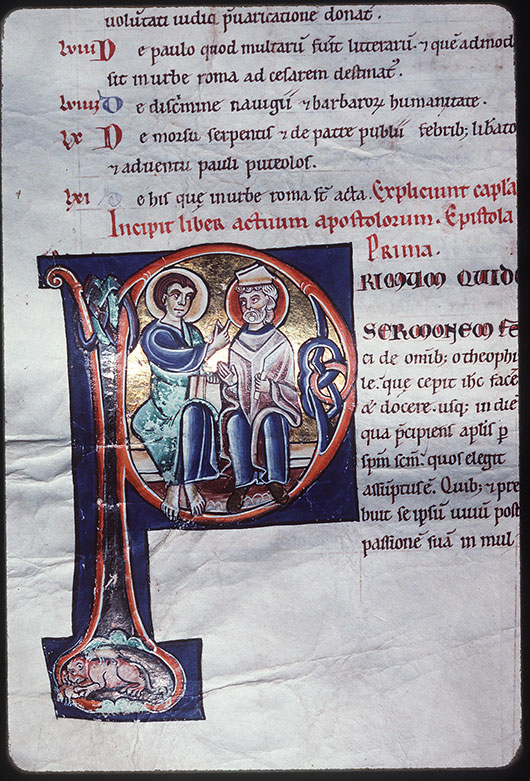 voluntati iudiq p̄uaricatione donat᷒.
lviii De paulo quod multarū fuīt litterarū. ⁊ quē admod
sit in urbe roma ad cesarem destinat᷒.
lviiii De disc̄mine nauigii ⁊ barbaroꝝ humanitate.
lx De morsu serpentis ⁊ de patre publii febrib; libato
⁊ aduentu pauli puteolos.
lxi De his quę in urbe roma st̄ acta. Expliciunt capl̄a
Incipit liber actuum apostolorum. Epistola
Prima.
PRIMUM QUIDE
SERMONEM FE
ci de omīb; o theophi
le. quę cepit ih̄c facē
⁊ docere. usq; in diē
qua p̄cipiens apl̄is p
sp̄m sc̄m. quos elegit
assūptus ē. Quib; ⁊ pre
buit se ip̄sū uiuū post
passionē suā in mul